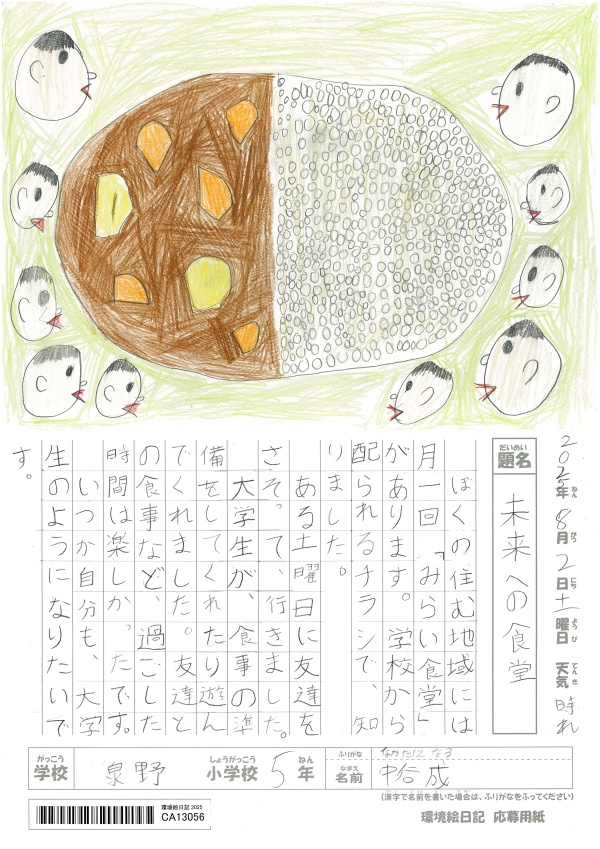 2025年ねん 8月がつ 2日にち 土曜日ようび 天気てんき 晴れ
だいめい
題名
未来への食堂
ぼくの住む地域には
月一回「みらい食堂」
があります。学校から
配られるチラシで、知
りました。
ある土曜日に友達を
さそって、行きました。
大学生が、食事の準
備をしてくれたり遊ん
でくれました。友達と
の食事など、過ごした
時間は楽しかったです。
いつか自分も、大学
生のようになりたいで
す。
がっこう
学校
泉野
しょうがっこう
小学校
5
ねん
年
ふりがな
なまえ
名前
なる
成
(漢字で名前を書いた場合は、ふりがなをふってください)
環境絵日記 応募用紙
環境絵日記 2025
CA13056